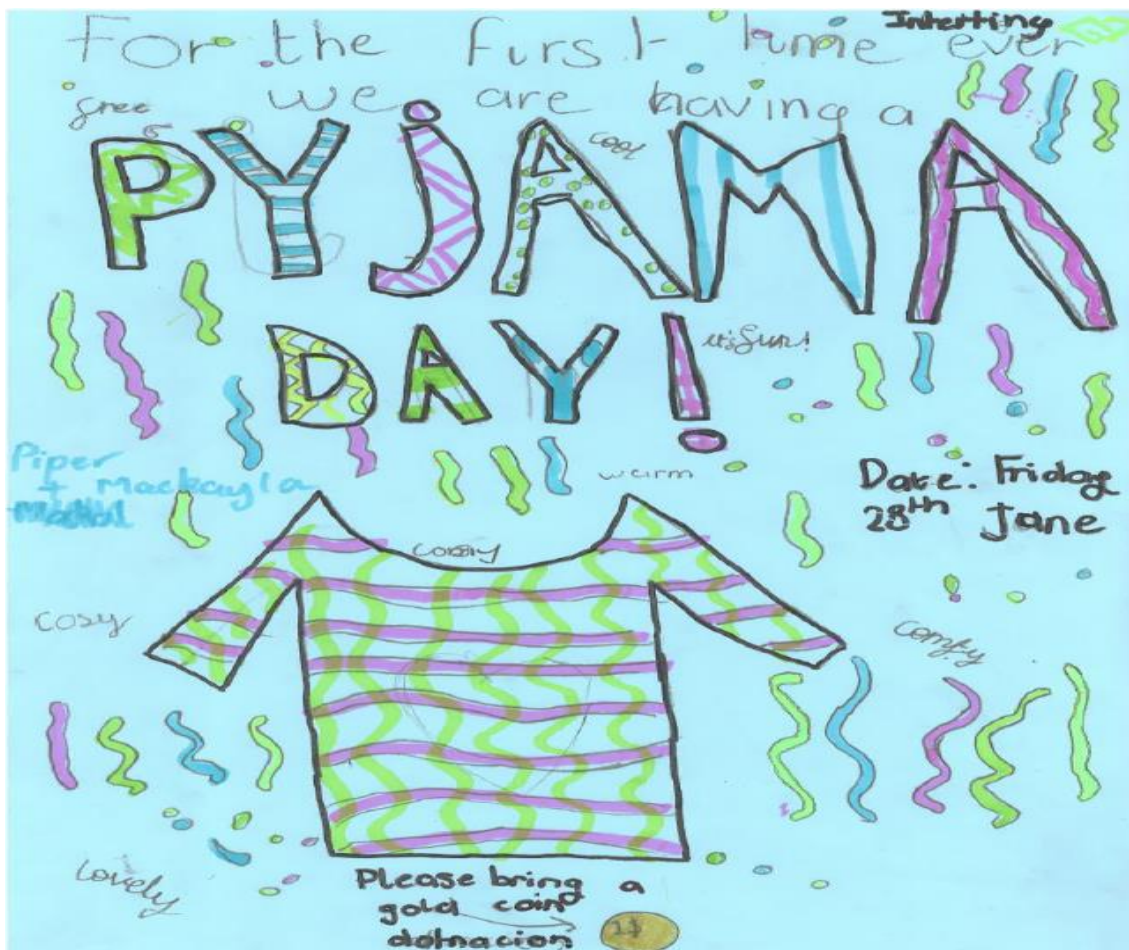 Inhetting
For the furst time ever
we are having a
free
PYJAMA
cool
DAY!
it's fun!
Piper
+ Mackayla
warm
Date: Friday
28th June
cosy
comfy
lovely
Please bring a
gold coin
dotnacion